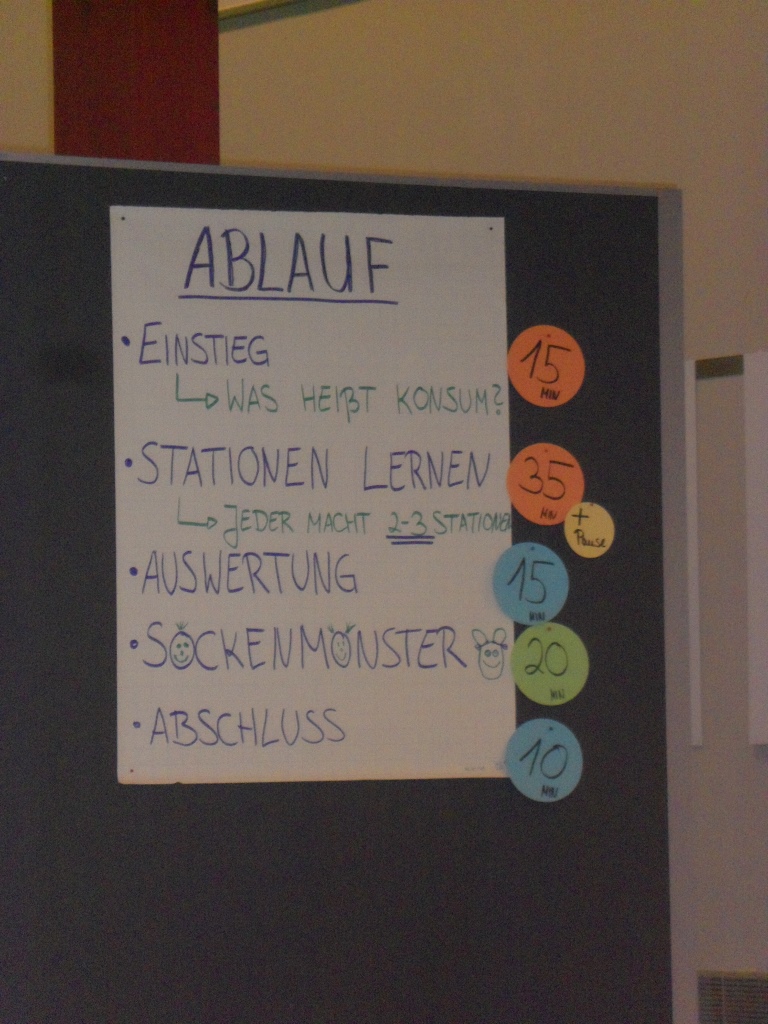 ABLAUF
• EINSTIEG
15 MIN
↳ WAS HEIßT KONSUM?
• STATIONEN LERNEN
35 MIN
↳ JEDER MACHT 2-3 STATIONEN
+ Pause
• AUSWERTUNG
15 MIN
• SOCKENMONSTER
20 MIN
• ABSCHLUSS
10 MIN